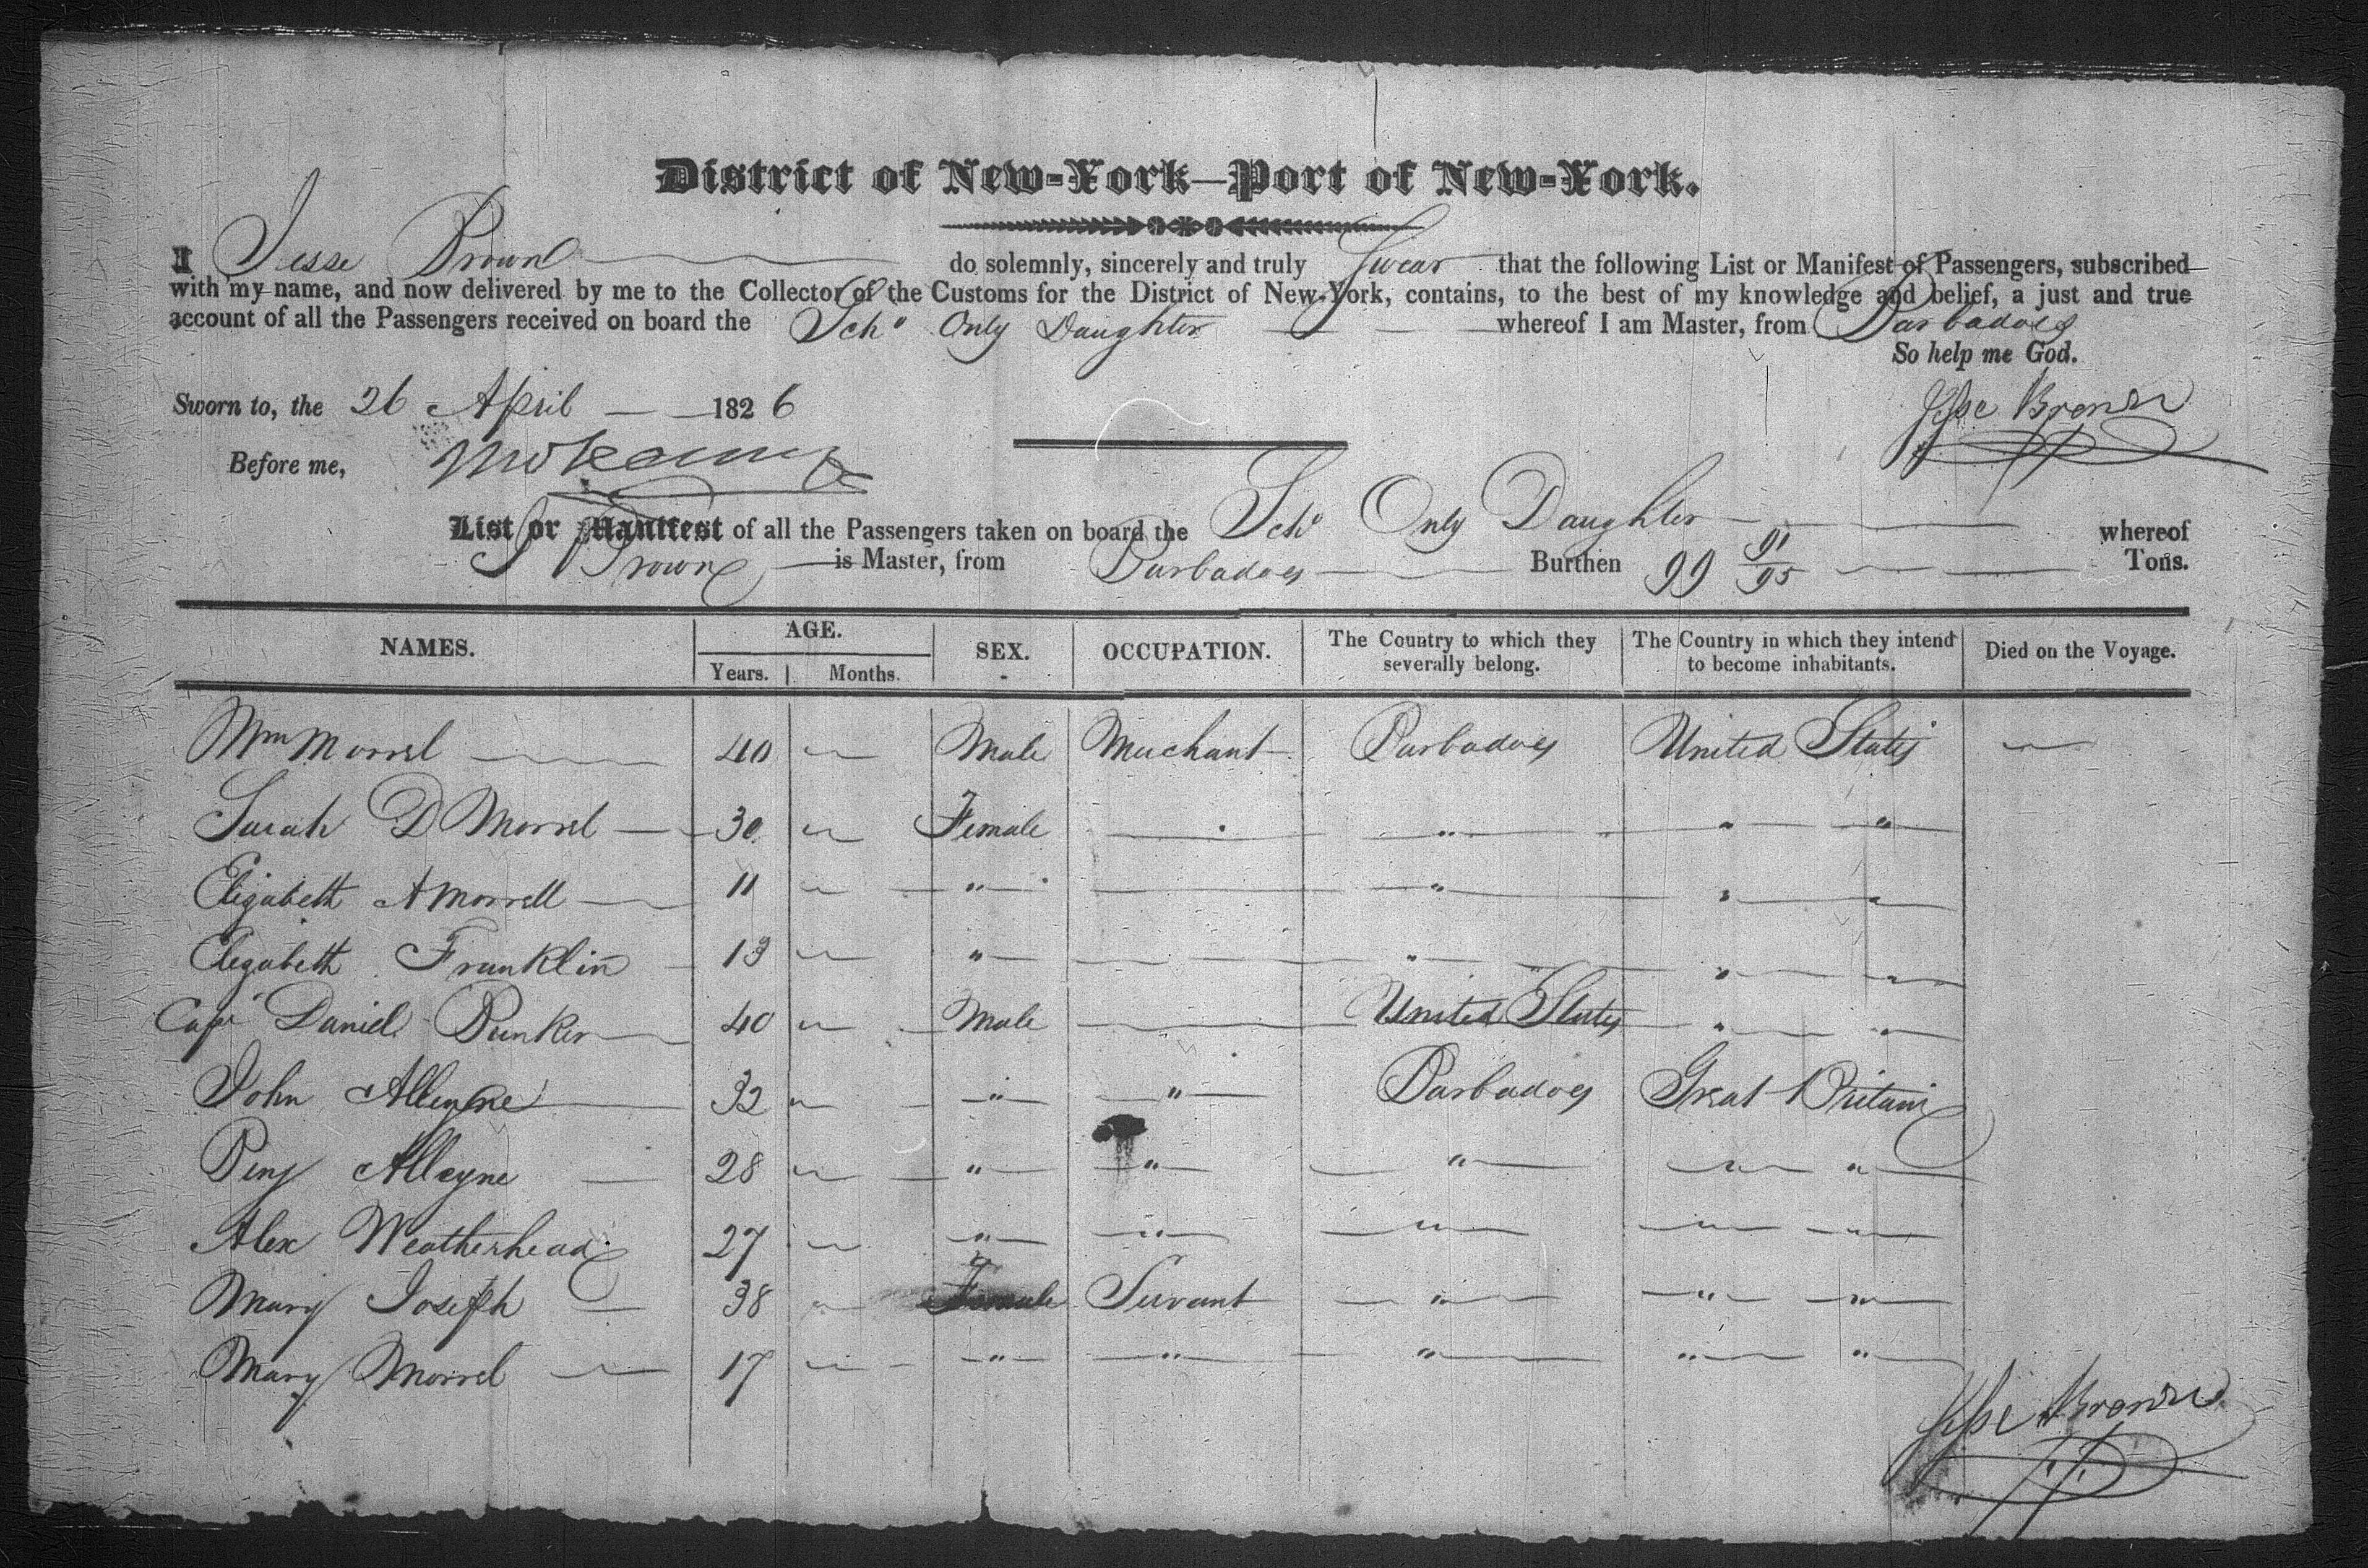 District of New-York—Port of New-York.
I Jesse Brown do solemnly, sincerely and truly Swear that the following List or Manifest of Passengers, subscribed
with my name, and now delivered by me to the Collector of the Customs for the District of New-York, contains, to the best of my knowledge and belief, a just and true
account of all the Passengers received on board the Schr Only Daughter whereof I am Master, from Barbadoes
So help me God.
Sworn to, the 26 April 1826
Jesse Brown
Before me,
List or Manifest of all the Passengers taken on board the Schr Only Daughter whereof
J Brown is Master, from Barbadoes Burthen 99 91/95 Tons.
NAMES. AGE. SEX. OCCUPATION. The Country to which they severally belong. The Country in which they intend to become inhabitants. Died on the Voyage.
Years. Months.
Wm Morrel 40 Male Merchant Barbadoes United States
Sarah D Morrel 30 Female " " "
Elizabeth A Morrell 11 " " " "
Elizabeth Franklin 13 " " " "
Capt Daniel Bunker 40 Male United States " "
John Alleyne 32 " " Barbadoes Great Britain
Benj Alleyne 28 " " " " "
Alex Weatherhead 27 " " " " "
Mary Joseph 38 Female Servant " " "
Mary Morrel 17 " " " " "
Jesse Brown